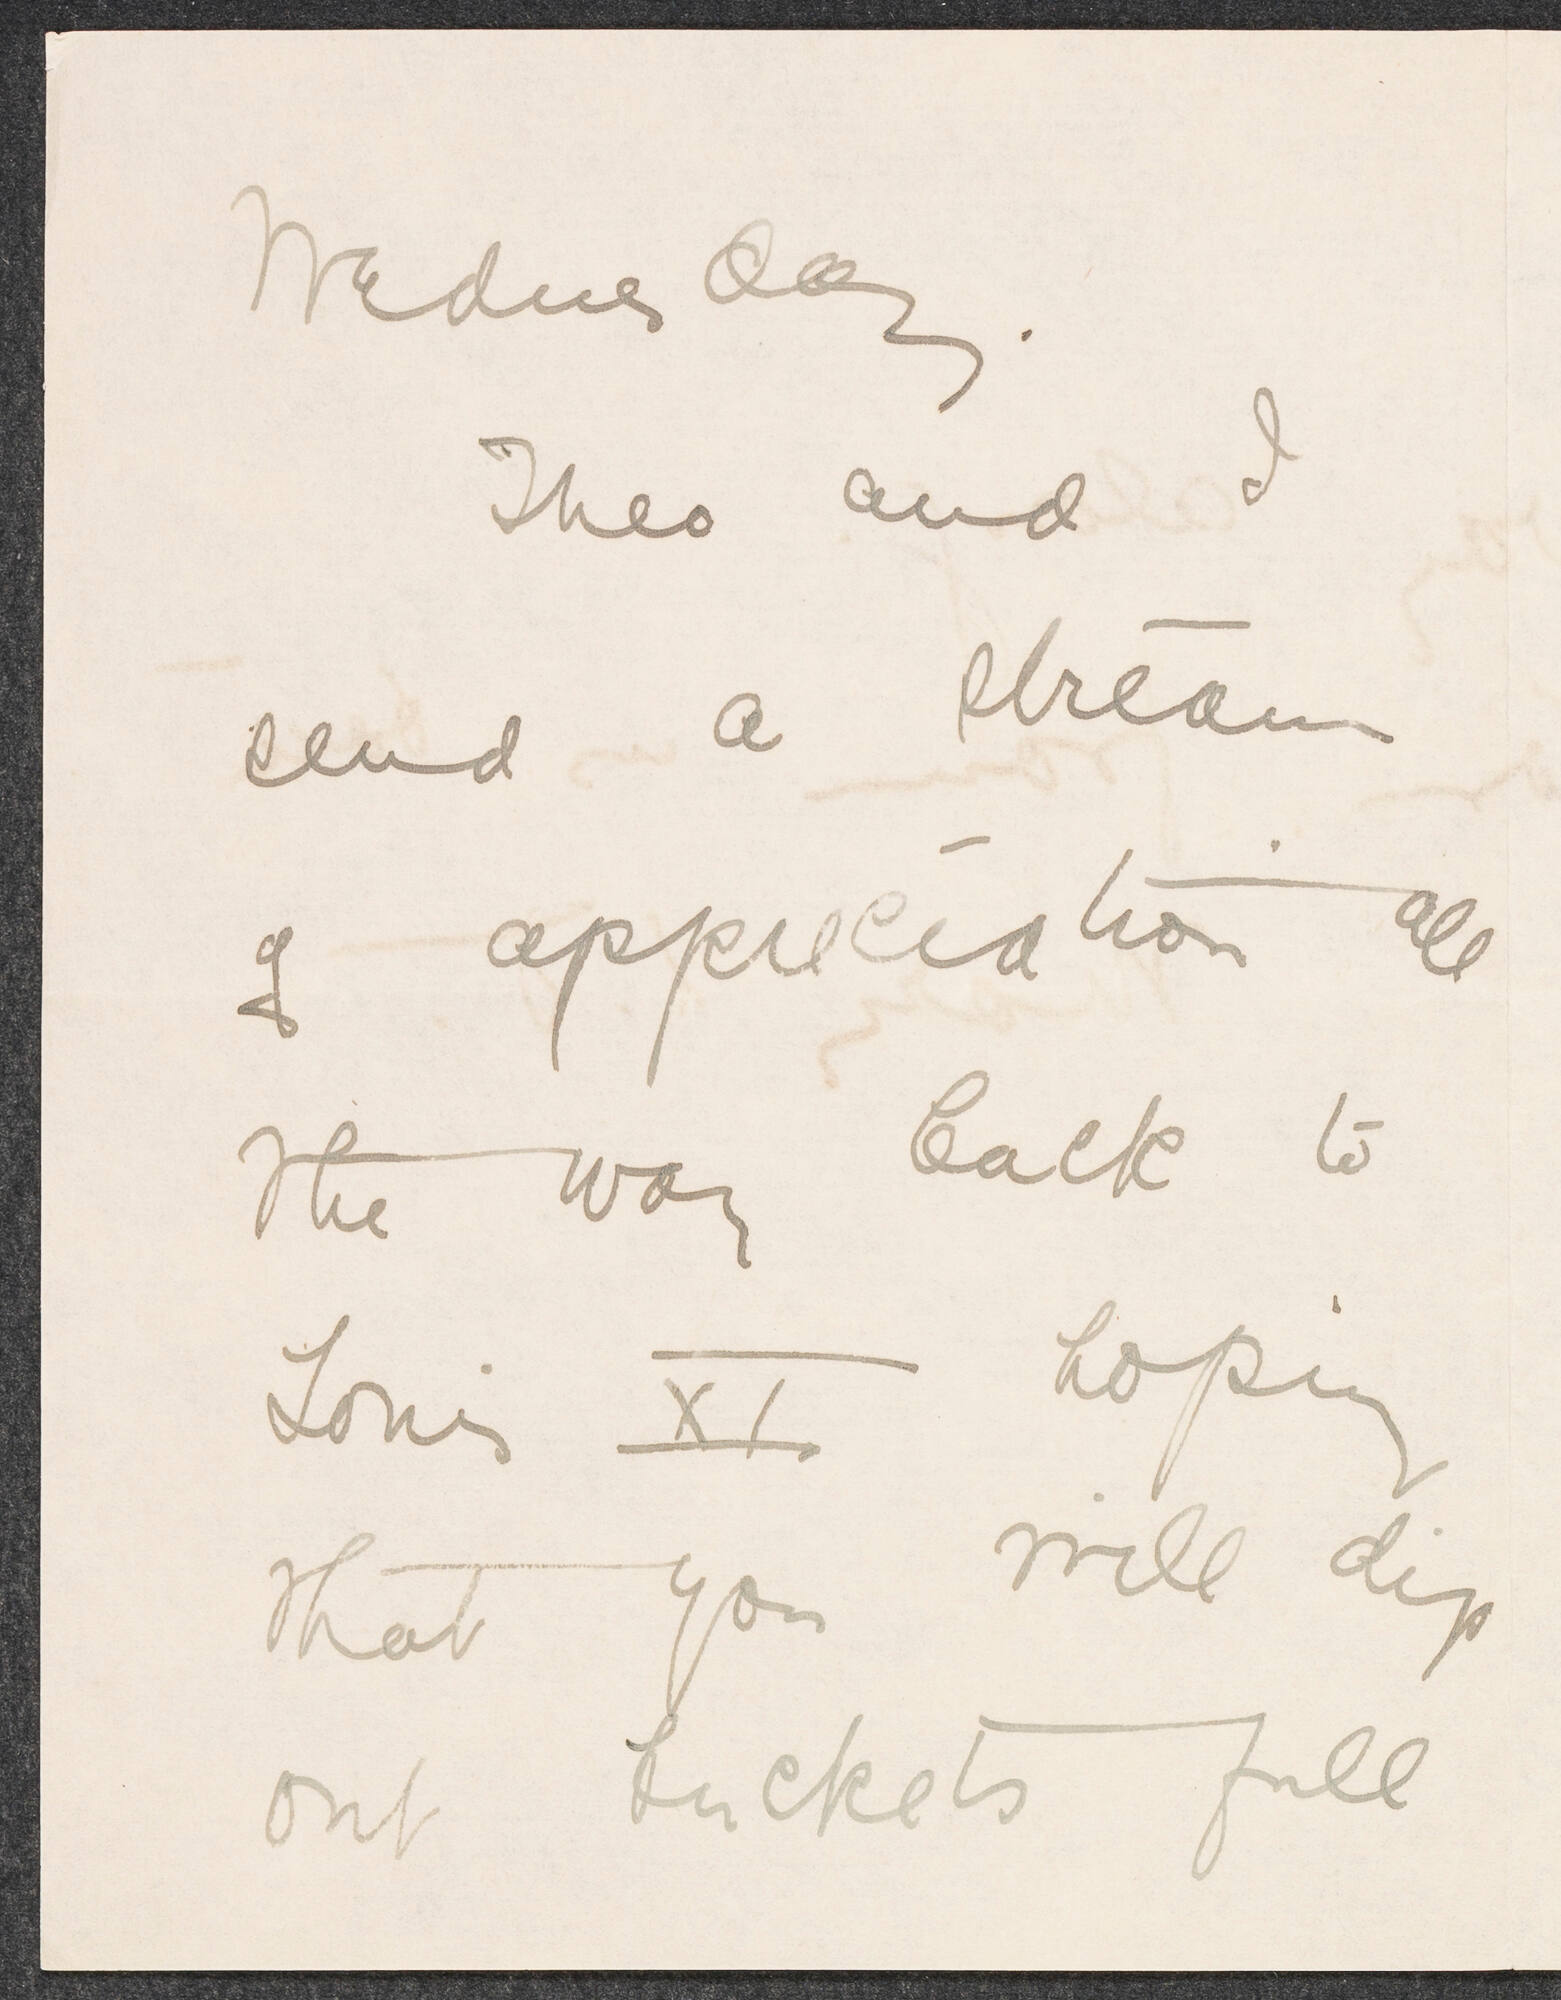 Wednesday.
Theo and I
send a stream
of appreciation all
the way back to
Louis XI hoping
that you will dip
out buckets full